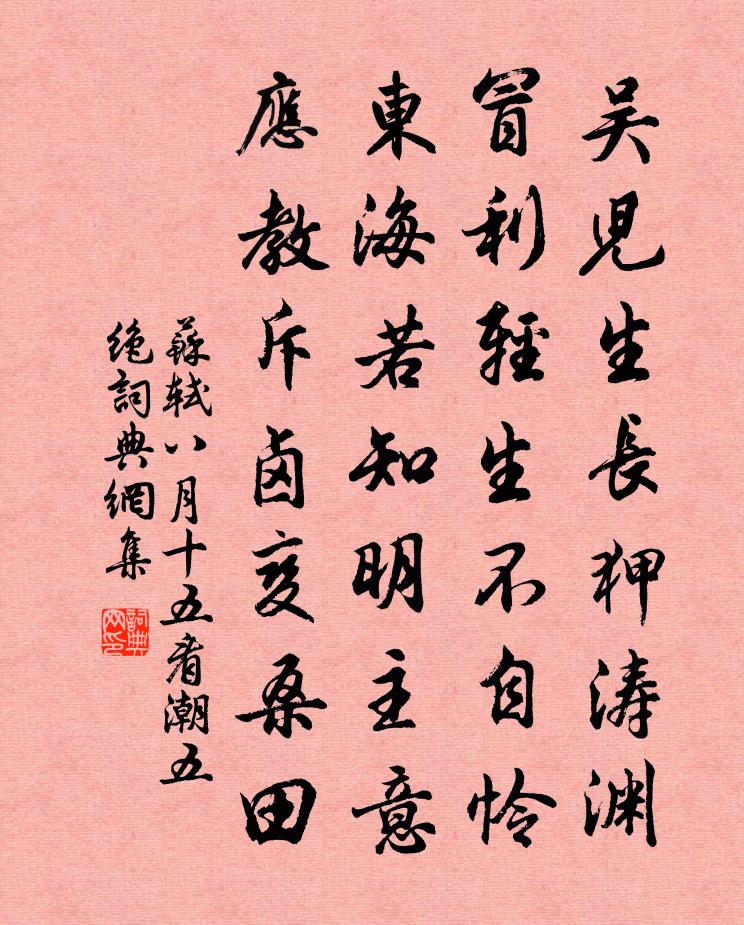 吴兒生長狎涛渊
冒利輕生不自怜
東海若知明主意
應教斥鹵变桑田
蘇軾八月十五看潮五
绝詞典網集
詞典网印